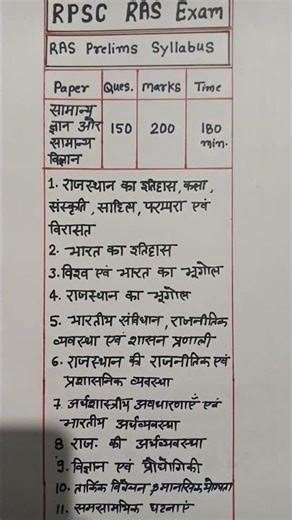 RPSC RAS Exam
RAS Prelims Syllabus
Paper Ques. marks Time
सामान्य
ज्ञान और 150 200 180
सामान्य min.
विज्ञान
1. राजस्थान का इतिहास, कला,
संस्कृति, साहित्य, परम्परा एवं
विरासत
2. भारत का इतिहास
3. विश्व एवं भारत का भूगोल
4. राजस्थान का भूगोल
5. भारतीय संविधान, राजनीतिक
व्यवस्था एवं शासन प्रणाली
6. राजस्थान की राजनीतिक एवं
प्रशासनिक व्यवस्था
7. अर्थशास्त्रीय अवधारणाएँ एवं
भारतीय अर्थव्यवस्था
8 राज. की अर्थव्यवस्था
9. विज्ञान एवं प्रौद्योगिकी
10. तार्किक विवेचन व मानसिक योग्यता
11. समसामयिक घटनाएं